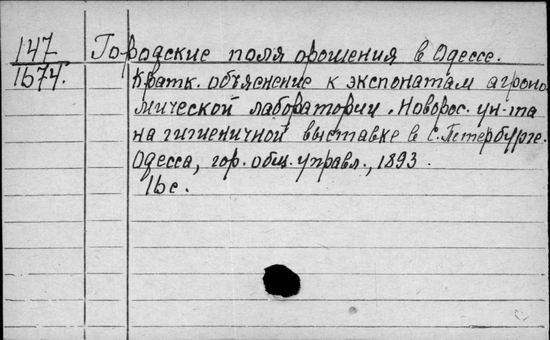 147 Городские поля орошения в Одессе.
1674. Кратк. объяснение к экспонатам агроно
мической лаборатории. Новорос. ун-та
на гигиеничной выставке в С. Петербурге.
Одесса, гор. общ. управл., 1893.
16 с.